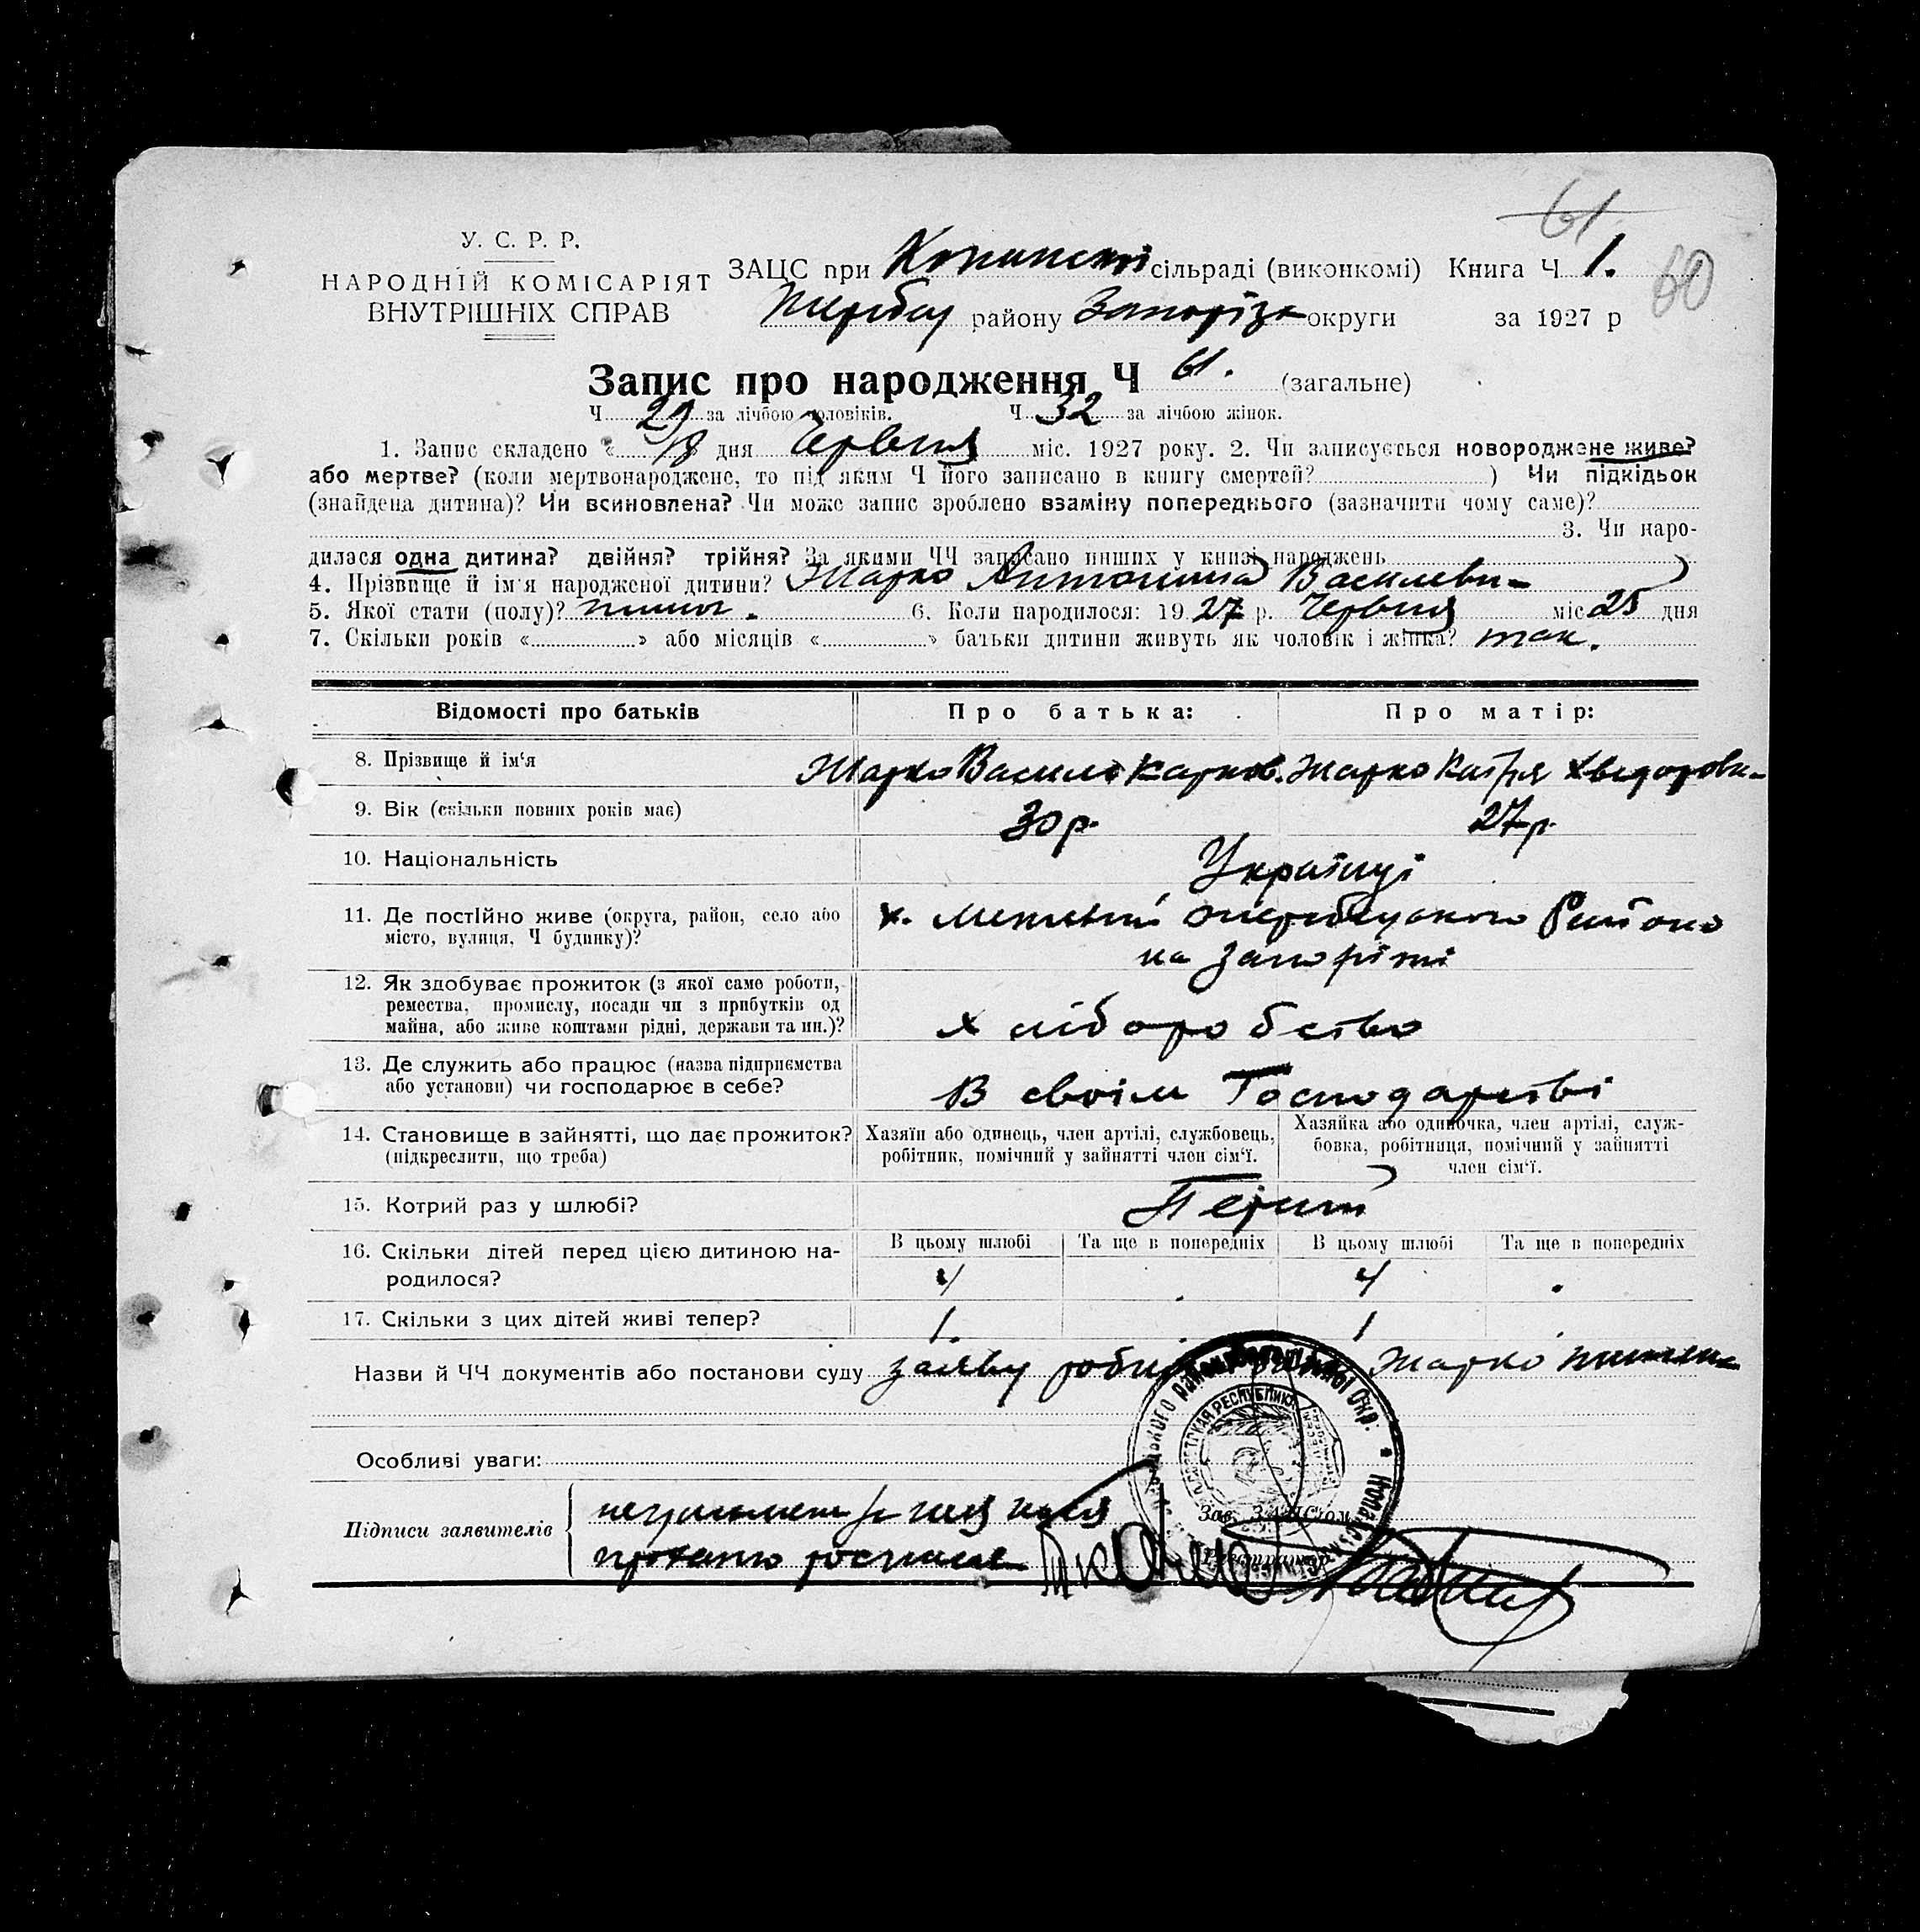 61
60
У. С. Р. Р.
НАРОДНІЙ КОМІСАРІЯТ
ВНУТРІШНІХ СПРАВ
ЗАЦС при сільраді (виконкомі) Книга Ч 1.
району Запоріз округи за 1927 р
Запис про народження Ч 61. (загальне)
Ч 29 за лічбою чоловіків. Ч 32 за лічбою жінок.
1. Запис складено « » дня Червня міс. 1927 року. 2. Чи записується новороджене живе?
або мертве? (коли мертвонароджене, то під яким Ч його записано в книгу смертей? ) Чи підкідьок
(знайдена дитина)? Чи всиновлена? Чи може запис зроблено взаміну попереднього (зазначити чому саме)?
3. Чи наро-
дилася одна дитина? двійня? трійня? За якими ЧЧ записано инших у книзі народжень
4. Прізвище й ім'я народженої дитини? Жарко Антонина Василеви-
5. Якої стати (полу)? жіноч. 6. Коли народилося: 1927 р. Червня міс 25 дня
7. Скільки років « » або місяців « » батьки дитини живуть як чоловік і жінка? так.
Відомості про батьків Про батька: Про матір:
8. Прізвище й ім'я Жарко Василь Карпов. Жарко Катря Хведорови-
9. Вік (скільки повних років має) 30 р. 27 р.
10. Національність Українці
11. Де постійно живе (округа, район, село або
місто, вулиця, Ч будинку)?
х. Жеребецького Району
на Запоріжі
12. Як здобуває прожиток (з якої саме роботи,
ремества, промислу, посади чи з прибутків од
майна, або живе коштами рідні, держави та ин.)?
Хліборобство
13. Де служить або працює (назва підприємства
або установи) чи господарює в себе?
В своїм Господарстві
14. Становище в зайнятті, що дає прожиток?
(підкреслити, що треба)
Хазяїн або одинець, член артілі, службовець,
робітник, помічний у зайнятті член сім'ї.
Хазяйка або одиночка, член артілі, служ-
бовка, робітниця, помічний у зайнятті
член сім'ї.
15. Котрий раз у шлюбі? Перший
16. Скільки дітей перед цією дитиною на-
родилося?
В цьому шлюбі Та ще в попередніх В цьому шлюбі Та ще в попередніх
4 4
17. Скільки з цих дітей живі тепер? 1. 1
Назви й ЧЧ документів або постанови суду заяву Жарко
Особливі уваги:
Підписи заявителів
Зав. ЗАЦС'ом
Реєстратор